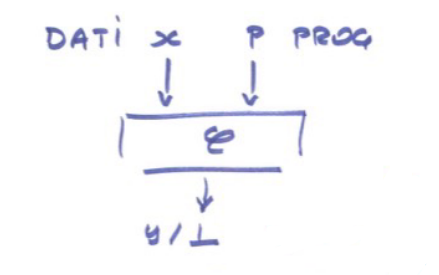 DATi x P PROG
φ
y/⊥